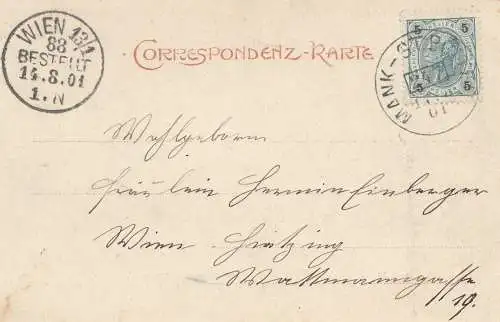 WIEN 13/1
88
BESTELLT
14.8.01
1.N
CORRESPONDENZ-KARTE
5 5
5 5
MANK-
01
Wohlgeboren
Fräulein Hermin Einberger
Wien Hietzing
Wattmanngasse
19.